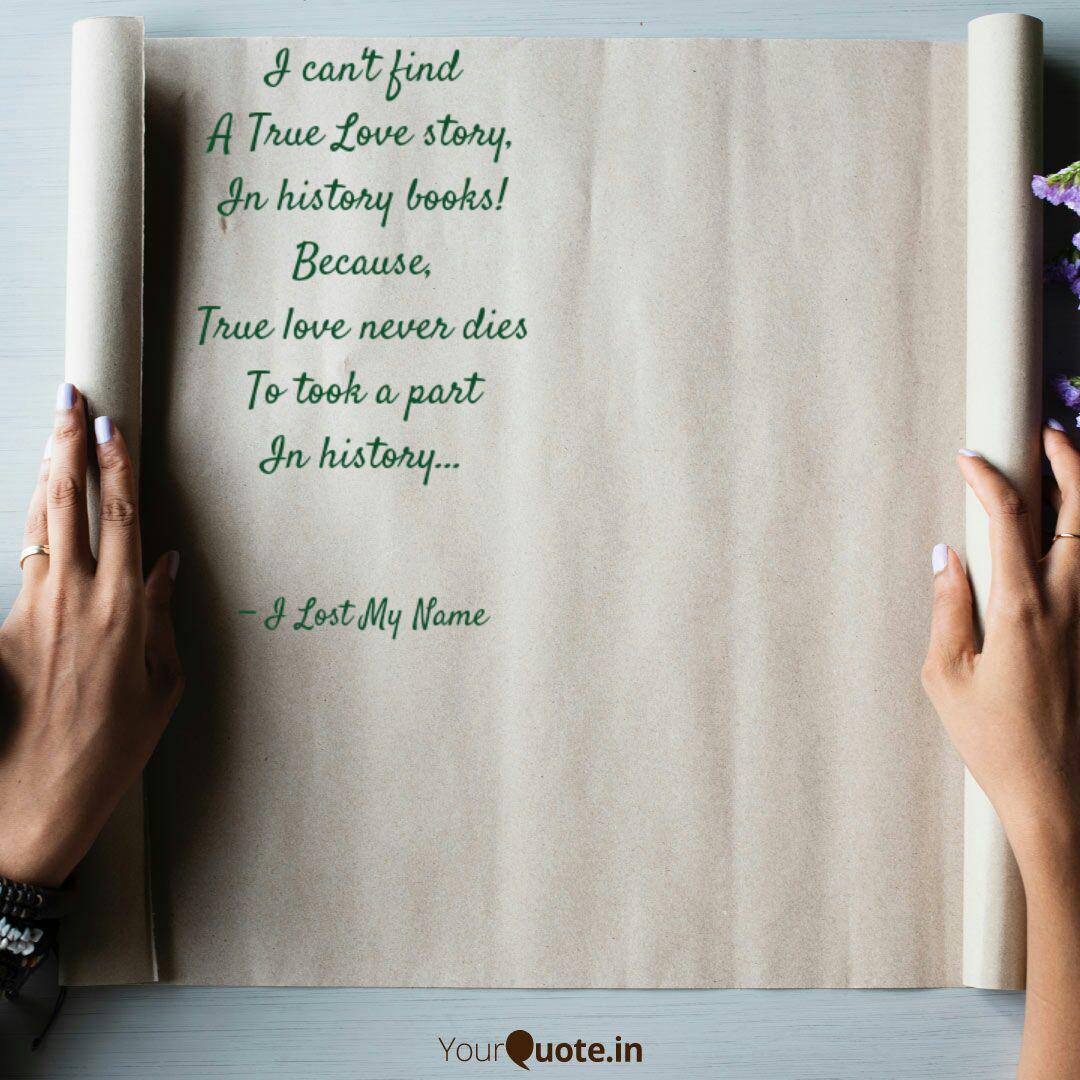 I can't find
A True Love story,
In history books!
Because,
True love never dies
To took a part
In history...
– I Lost My Name
YourQuote.in